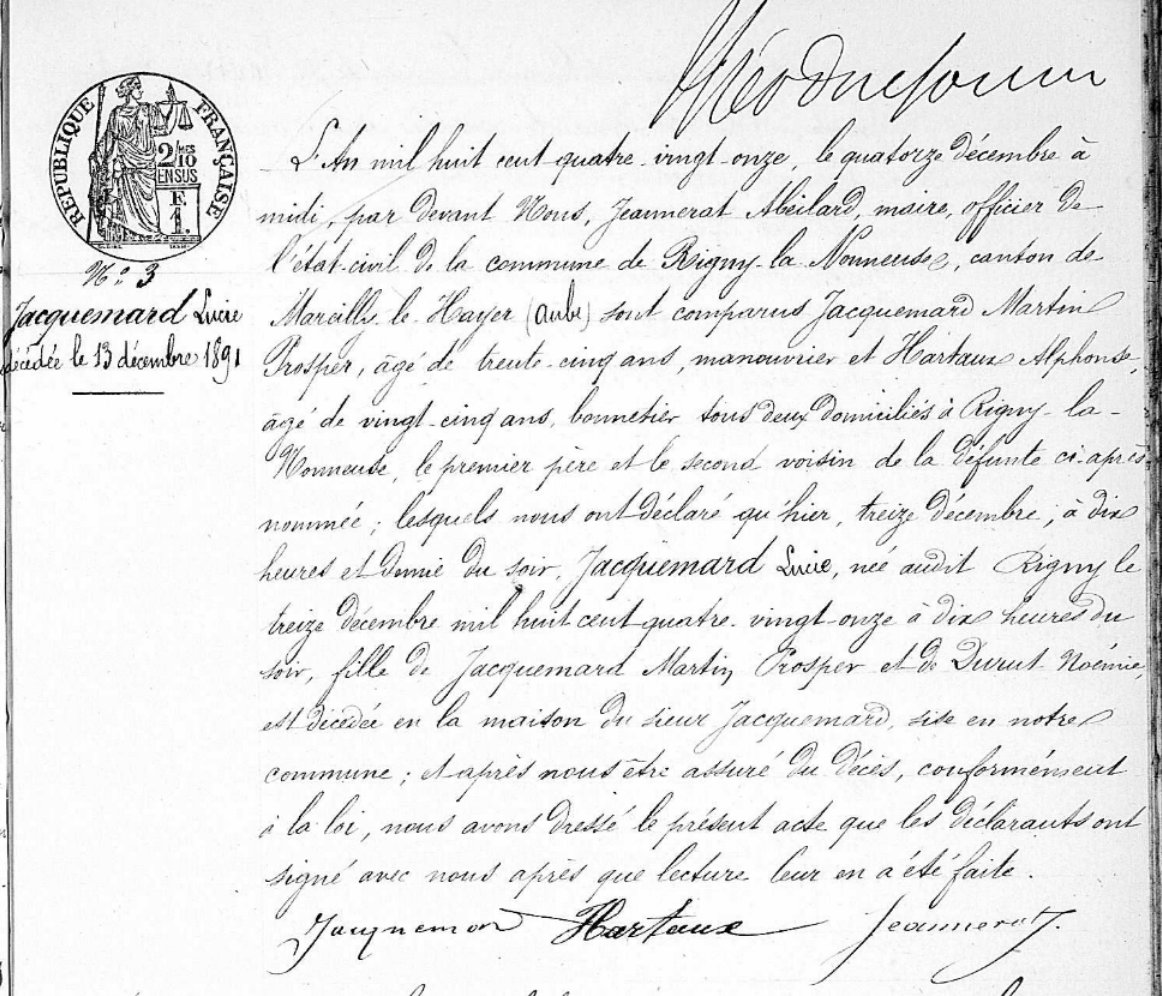 RÉPUBLIQUE FRANÇAISE
2/MES
10
EN SUS
F.
1.
L'An mil huit cent quatre-vingt-onze, le quatorze décembre à
midi, par devant Nous, Jeannerat Abeilard, maire, officier de
l'état-civil de la commune de Rigny-la-Nonneuse, canton de
N° 3
Jacquemard Lucie
décédée le 13 décembre 1891
Marcilly-le-Hayer (Aube) sont comparus Jacquemard Martin
Prosper, âgé de trente-cinq ans, manouvrier et Hartaux Alphonse,
âgé de vingt-cinq ans, bonnetier tous deux domiciliés à Rigny-la-
Nonneuse, le premier père et le second voisin de la défunte ci-après
nommée ; lesquels nous ont déclaré qu'hier, treize décembre, à dix
heures et demie du soir, Jacquemard Lucie, née audit Rigny le
treize décembre mil huit cent quatre-vingt-onze à dix heures du
soir, fille de Jacquemard Martin Prosper et de Durut Noémie,
est décédée en la maison du sieur Jacquemard, sise en notre
commune ; et après nous être assuré du décès, conformément
à la loi, nous avons dressé le présent acte que les déclarants ont
signé avec nous après que lecture leur en a été faite.
Jacquemard Hartaux Jeannerat